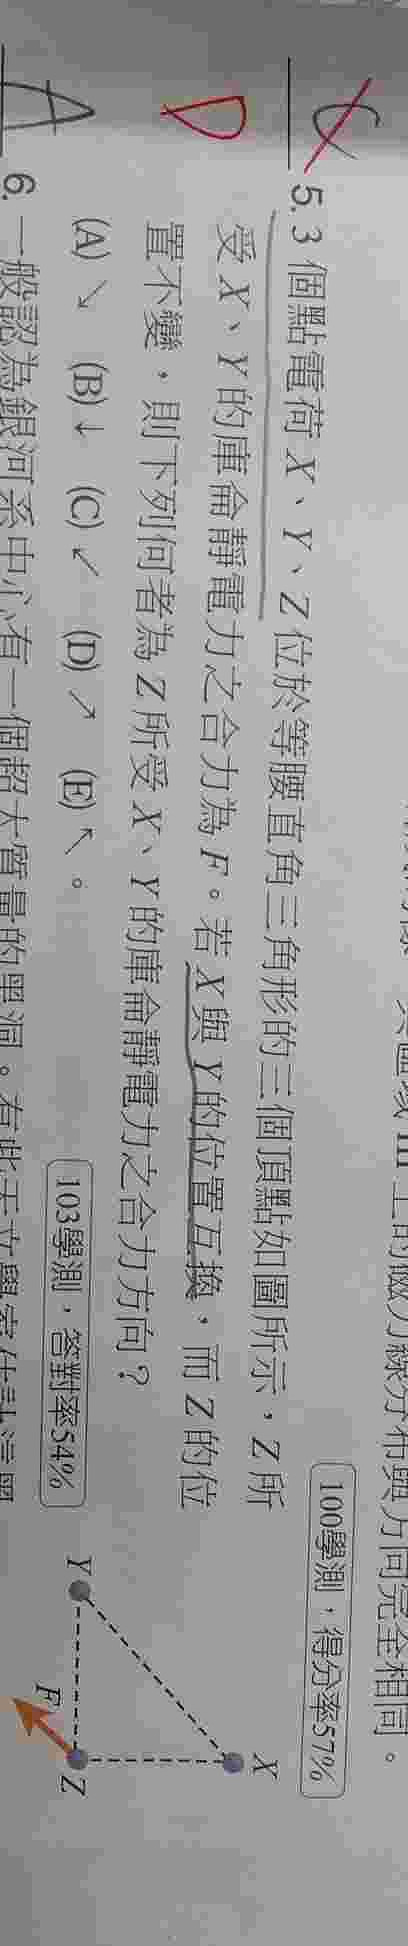 上的磁力線分布與方向完全相同。
100學測，得分率57%
C D 5. 3 個點電荷 X、Y、Z 位於等腰直角三角形的三個頂點如圖所示，Z 所
受 X、Y 的庫侖靜電力之合力為 F。若 X 與 Y 的位置互換，而 Z 的位
置不變，則下列何者為 Z 所受 X、Y 的庫侖靜電力之合力方向？
(A)↘ (B)↓ (C)↙ (D)↗ (E)↖。
103學測，答對率54%
X
Y
Z
F
A 6. 一般認為銀河系中心有一個超大質量的黑洞。有些天文學家估計這黑